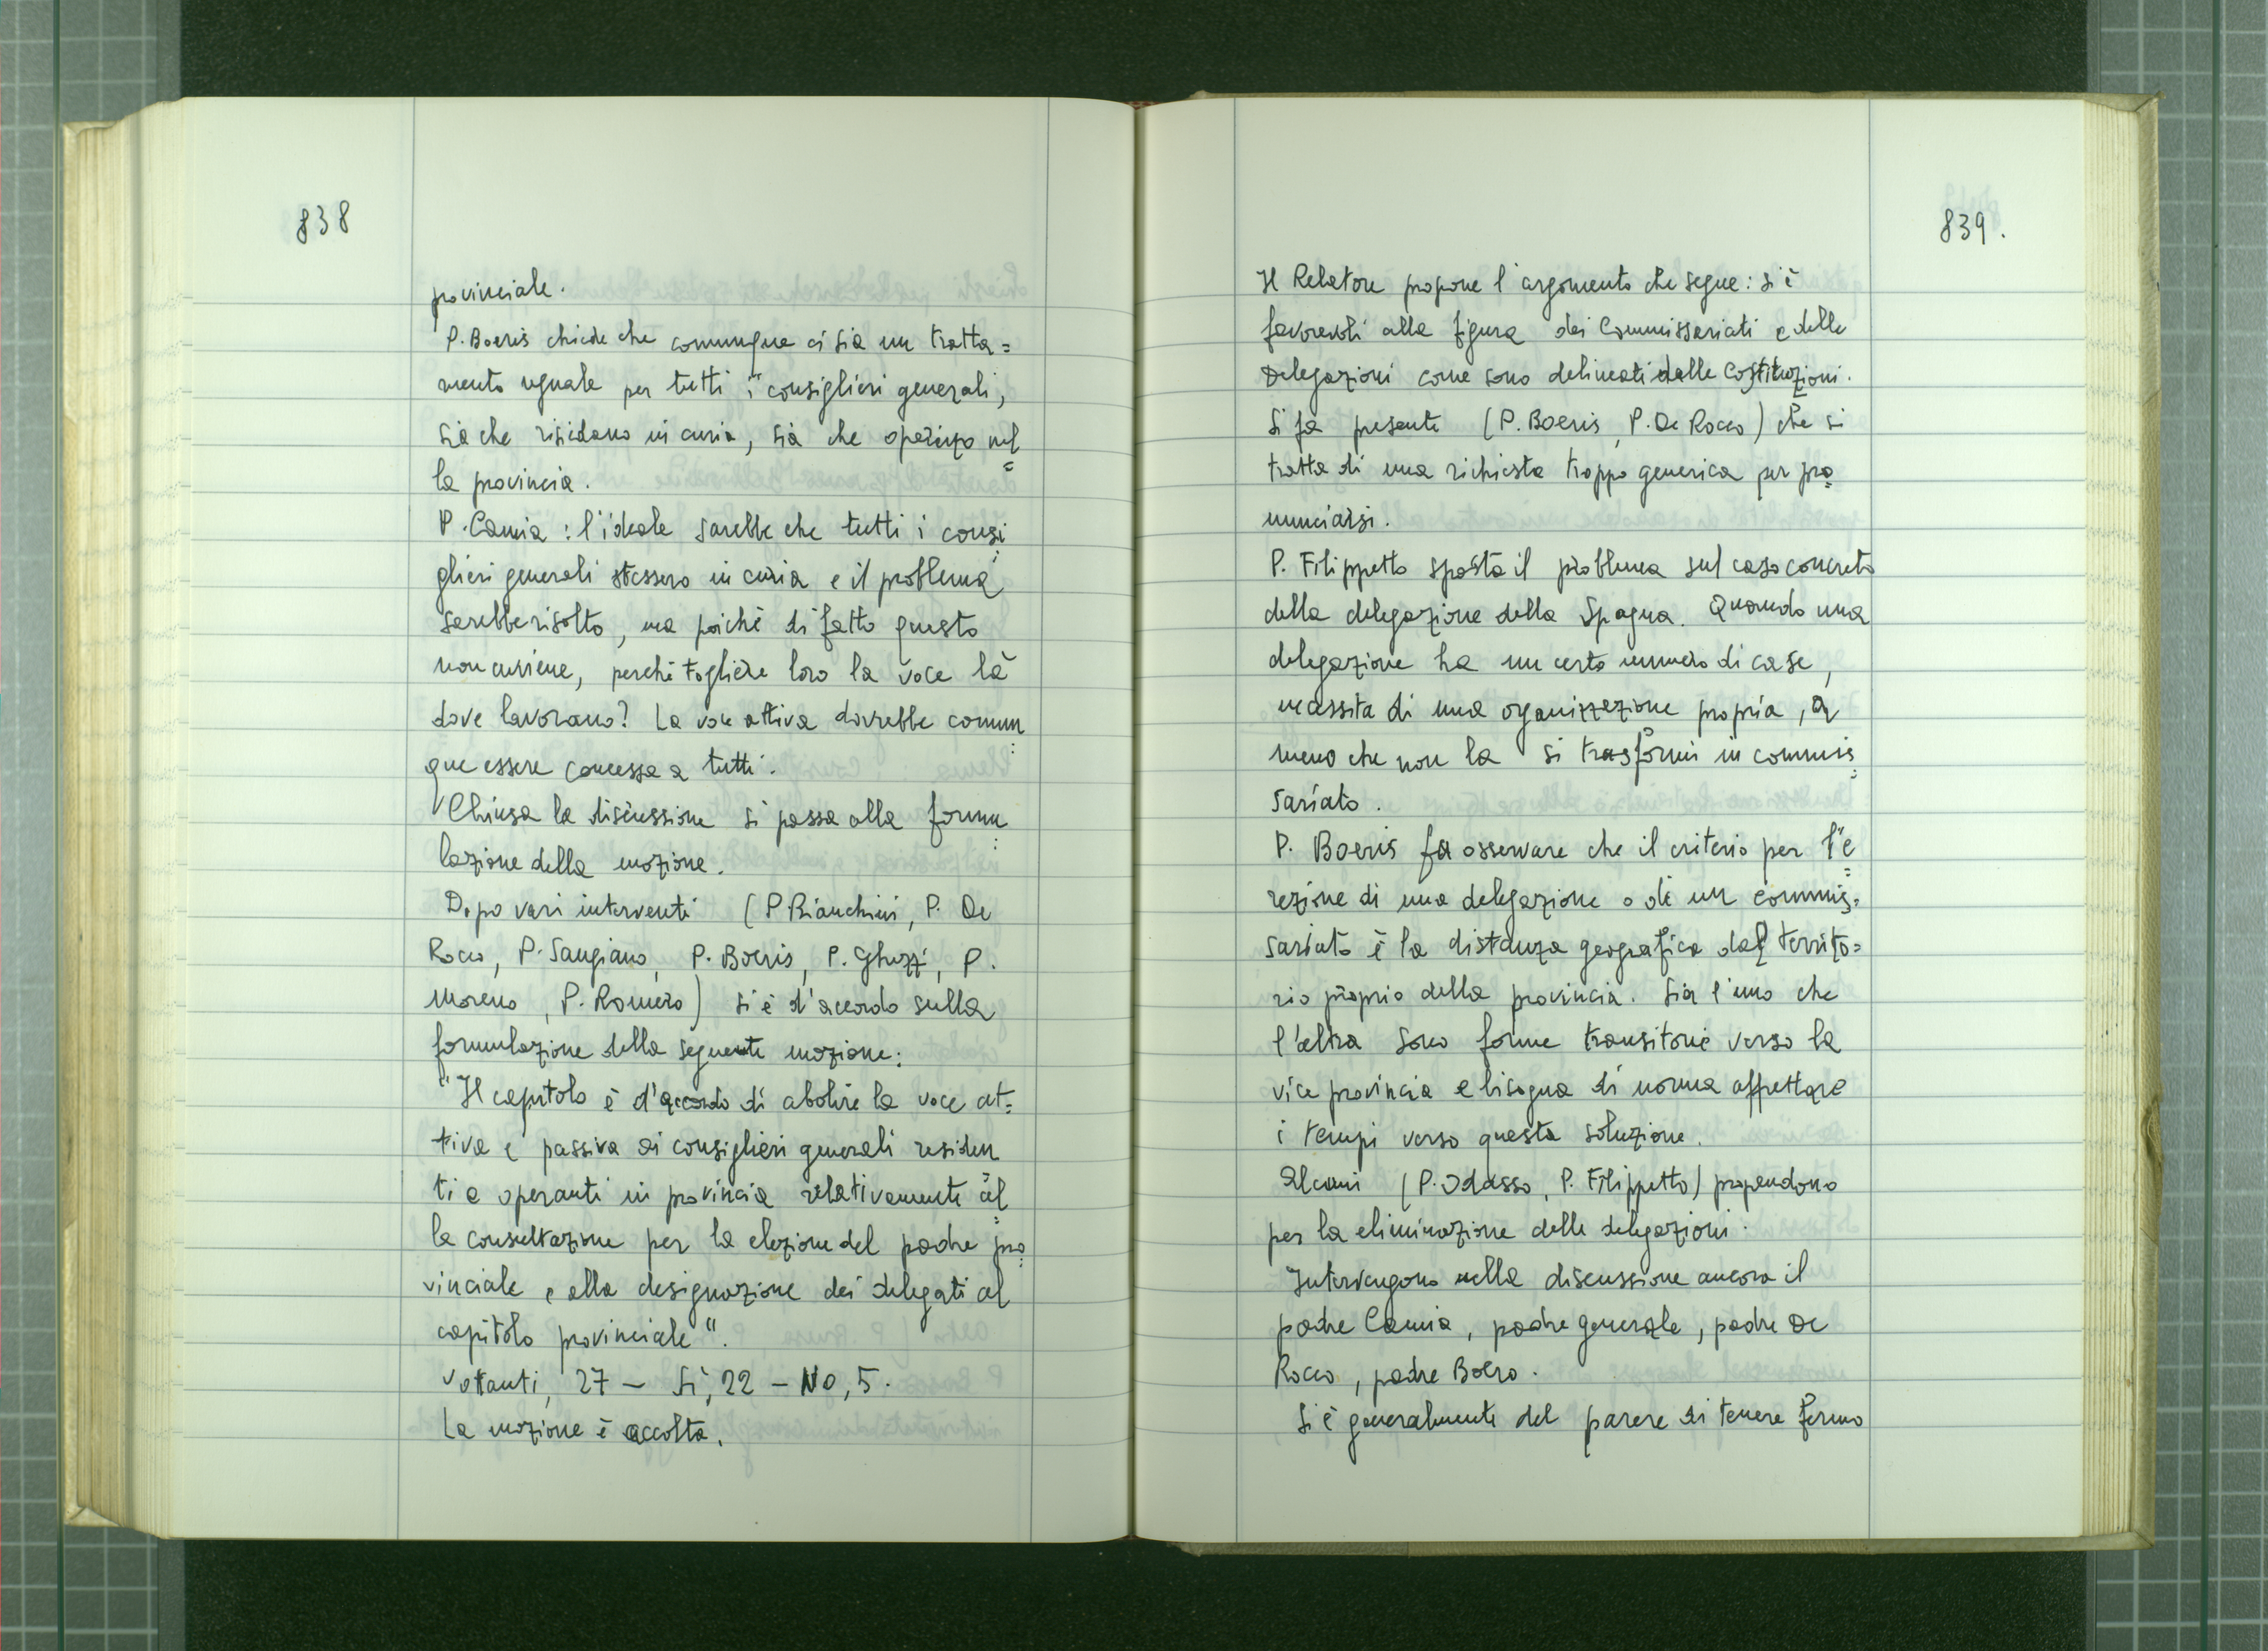 838
provinciale.
P. Boeris chiede che comunque ci sia un tratta=
mento uguale per tutti i consiglieri generali,
sia che risiedano in curia, sia che operino nel
la provincia.
P. Camia : l'ideale sarebbe che tutti i consi
glieri generali stessero in curia e il problema
sarebbe risolto, ma poichè di fatto questo
non avviene, perchè togliere loro la voce là
dove lavorano? La voce attiva dovrebbe comun
que essere concessa a tutti.
Chiusa la discussione si passa alla formu
lazione della mozione.
Dopo vari interventi (P Bianchini, P. De
Rocco, P. Sangiano, P. Boeris, P. Ghezzi, P.
Moreno, P. Romero) si è d'accordo sulla
formulazione della seguente mozione:
"Il capitolo è d'accordo di abolire la voce at=
tiva e passiva ai consiglieri generali residen
ti e operanti in provincia relativamente al
la consultazione per la elezione del padre pro
vinciale e alla designazione dei delegati al
capitolo provinciale".
Votanti, 27 - Sì, 22 - No, 5.
La mozione è accolta.
839.
Il Relatore propone l'argomento che segue: si è
favorevoli alla figura dei Commissariati e delle
Delegazioni come sono delineati dalle Costituzioni.
Si fa presente (P. Boeris, P. De Rocco) che si
tratta di una richiesta troppo generica per pro
nunciarsi.
P. Filippetto sposta il problema sul caso concreto
della delegazione della Spagna. Quando una
delegazione ha un certo numero di case,
necessita di una organizzazione propria, a
meno che non la si trasformi in commis
sariato.
P. Boeris fa osservare che il criterio per l'e
rezione di una delegazione o di un commis=
sariato è la distanza geografica dal territo=
rio proprio della provincia. Sia l'uno che
l'altra sono forme transitorie verso la
vice provincia e bisogna di norma affrettare
i tempi verso questa soluzione.
Alcuni (P. Odasso, P. Filippetto) propendono
per la eliminazione delle delegazioni.
Intervengono nella discussione ancora il
padre Camia, padre generale, padre De
Rocco, padre Boero.
Si è generalmente del parere di tenere fermo